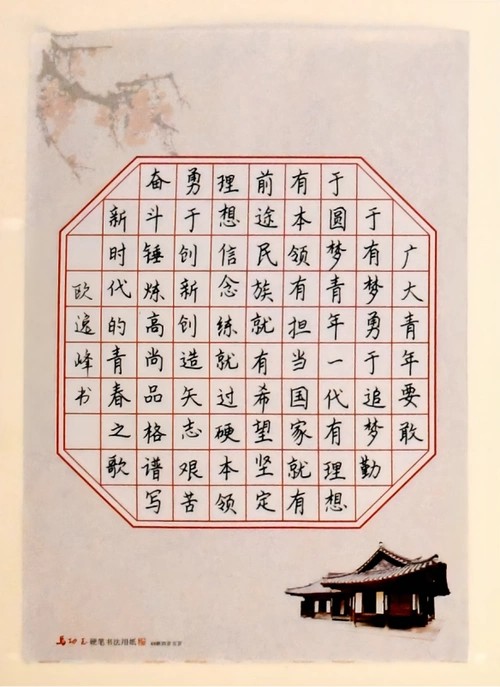 广大青年要敢
于有梦勇于追梦勤
于圆梦青年一代有理想
有本领有担当国家就有
前途民族就有希望坚定
理想信念练就过硬本领
勇于创新创造矢志艰苦
奋斗锤炼高尚品格谱写
新时代的青春之歌
欧逸峰书
硬笔书法用纸